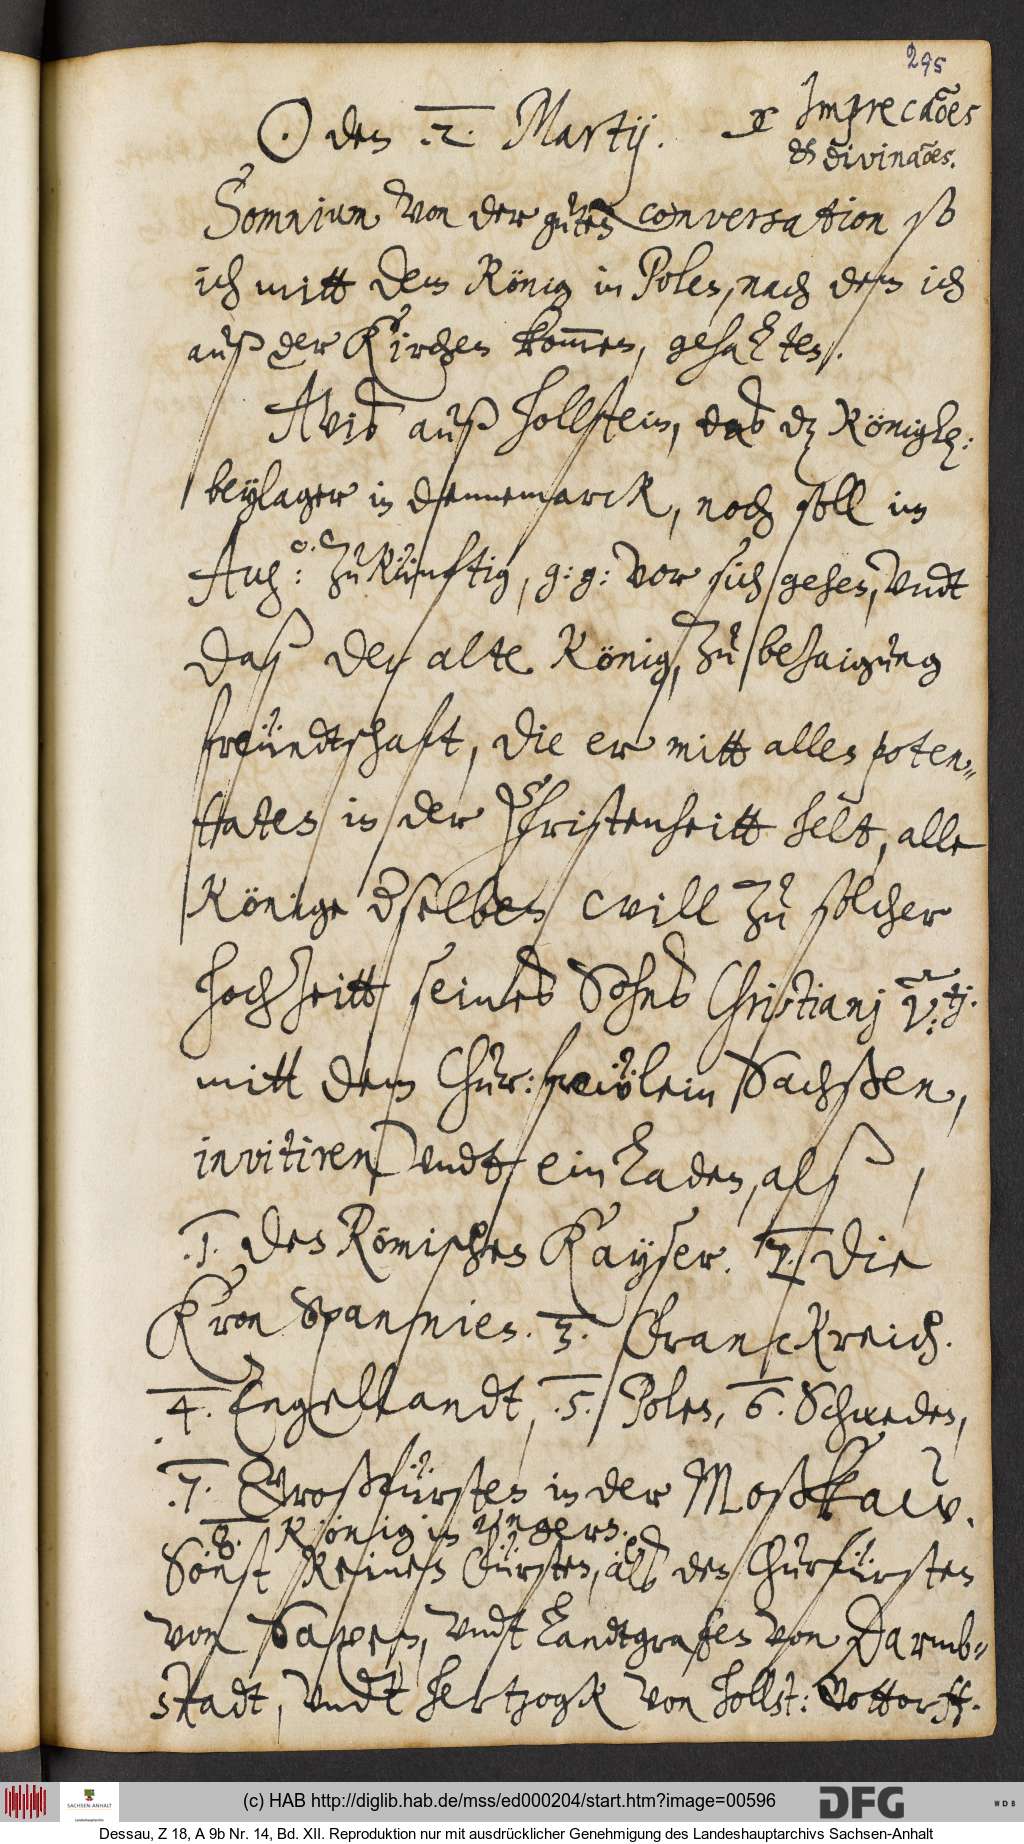 295
☉ den .2. Martij. x Imprecãoes
et divinãoes.
Somnium von der guten conversation so
ich mitt dem König in Polen, nach dem ich
auß der Kirchen kom̄en, gehabt.
Avis auß Hollstein, das dz Königl:
beylager in Dennemarck, noch soll im
Aug: zukünftig, g: g: vor sich gehen, undt
daß der alte König, zu bezaigung
freündtschaft, die er mitt allen poten-
taten in der Christenheitt helt, alle
Könige derselben will zu solcher
hochzeitt seines Sohns Christianj V:tj.
mitt dem Chur: freẅlein Sachßen,
invitiren undt ein laden, alß /
.1. den Römischen Kayser. 2. die
Kron Spannien. 3. Franckreich.
4. Engellandt, .5. Polen, 6. Schweden,
.7. Großfürsten in der Moßkaw.
8. König in Ungern.
Sonst keinen Fürsten, als den Churfürsten
von Saxen, undt Landtgrafen von Darmb-
stadt, undt Hertzogk von Hollst: Gottorff.
(c) HAB http://diglib.hab.de/mss/ed000204/start.htm?image=00596
SACHSEN-ANHALT
Landeshauptarchiv
DFG
WDB
Dessau, Z 18, A 9b Nr. 14, Bd. XII. Reproduktion nur mit ausdrücklicher Genehmigung des Landeshauptarchivs Sachsen-Anhalt